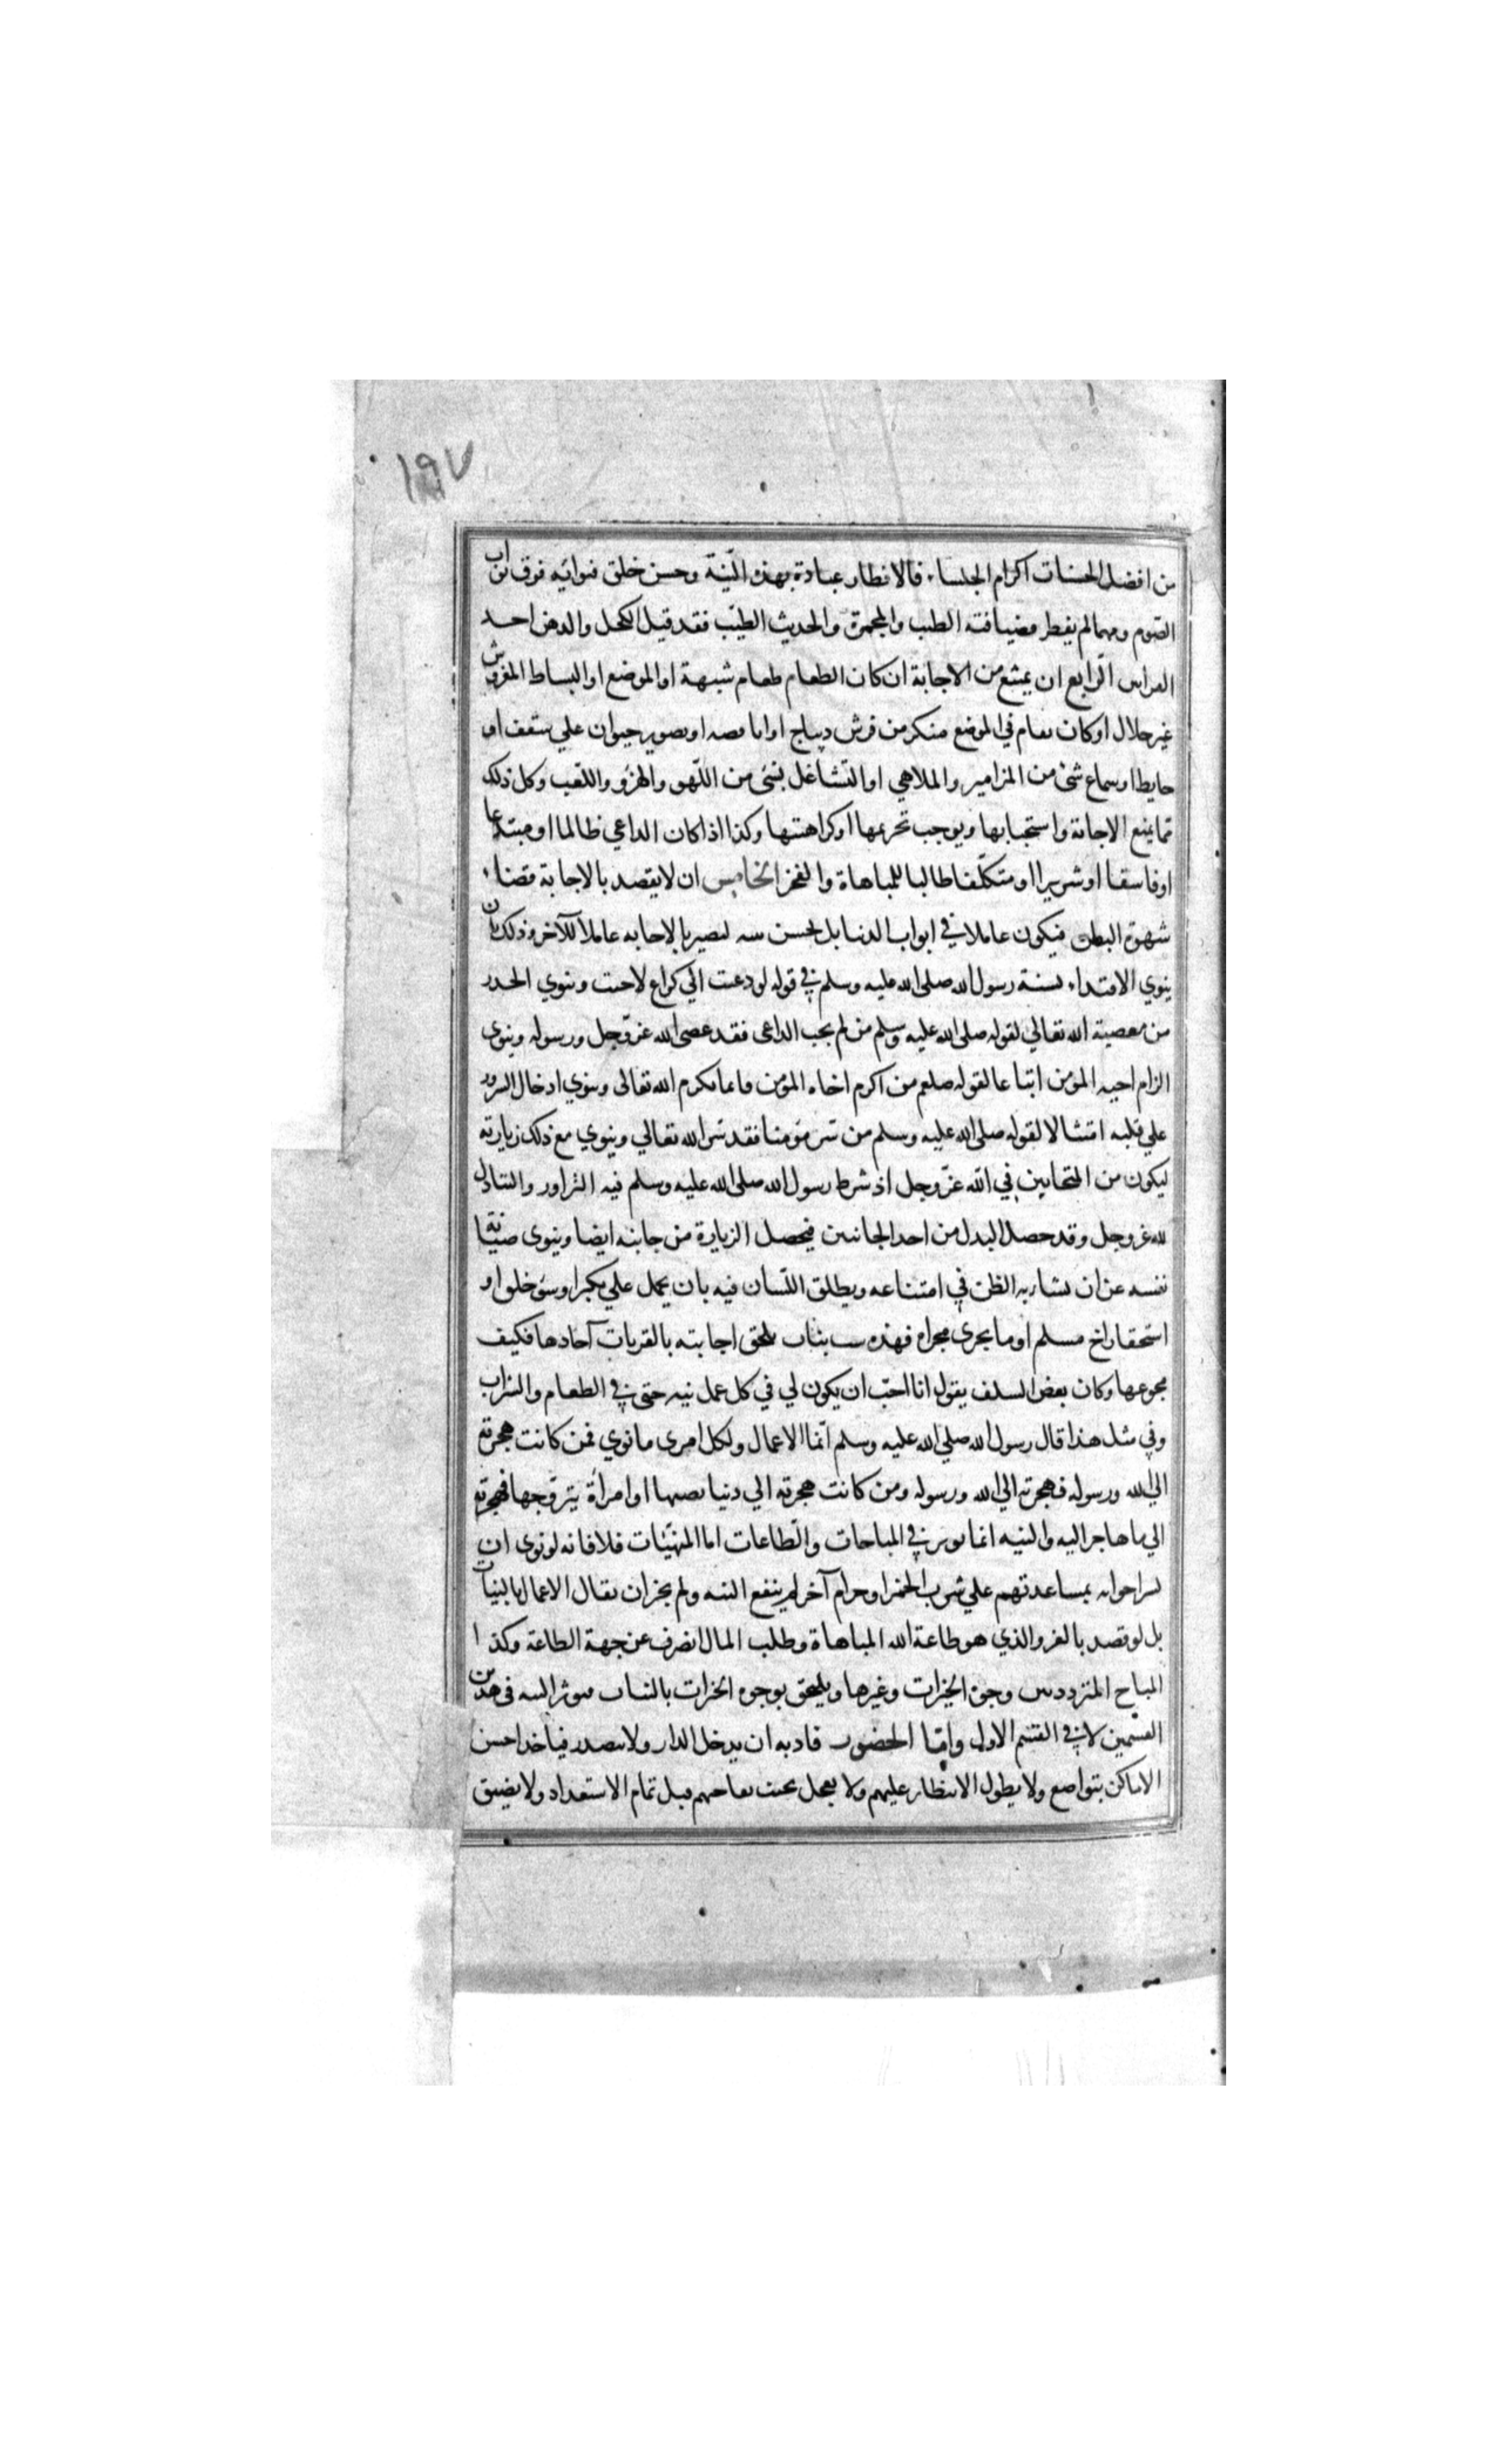 ١٩٧
من افضل الحسنات اكرام الجلساء فالافطار عبادة بهذه النية وحسن خلق فثوابه فوق ثواب
الصوم ومهما لم يفطر فضيافته الطيب والمجمرة والحديث الطيب فقد قيل الكحل والدهن احد
القراين الرابع ان يمتنع من الاجابة ان كان الطعام طعام شبهة او الموضع او البساط المفروش
غير حلال او كان يقام في الموضع منكر من فرش ديباج او انا فضه او تصوير حيوان علي سقف او
حايط او سماع شئ من المزامير والملاهي او التشاغل بشئ من اللهو والهزؤ واللعب وكل ذلك
مما يمنع الاجابة واستحبابها ويوجب تحريمها او كراهتها وكذا اذا كان الداعي ظالما او مبتدعا
او فاسقا او شريرا او متكلفا طالبا للمباهاة والفخر الخامس ان لا يقصد بالاجابة قضاء
شهوة البطن فيكون عاملا في ابواب الدنيا بل يحسن نيته ليصير بالاجابه عاملا للآخره وذلك بان
ينوي الاقتداء بسنة رسول الله صلى الله عليه وسلم في قوله لو دعيت الي كراع لاجبت وينوي الحذر
من معصية الله تعالي لقوله صلى الله عليه وسلم من لم يجب الداعى فقد عصى الله عز وجل ورسوله وينوى
اكرام اخيه المؤمن اتباعا لقوله صلعم من اكرم اخاه المؤمن فانما يكرم الله تعالى وينوي ادخال السرور
علي قلبه امتثالا لقوله صلى الله عليه وسلم من سر مؤمنا فقد سر الله تعالي وينوي مع ذلك زيارته
ليكون من المتحابين في الله عز وجل اذ شرط رسول الله صلى الله عليه وسلم فيه التزاور والتباذل
لله عز وجل وقد حصل البذل من احد الجانبين فيحصل الزيارة من جانبه ايضا وينوى صيانة
نفسه عن ان يساء به الظن في امتناعه ويطلق اللسان فيه بان يحمل علي تكبر او سوء خلق او
استحقار اخ مسلم او ما يجرى مجراه فهذه ست نيات يلحق اجابته بالقربات آحادها فكيف
مجموعها وكان بعض السلف يقول انا احب ان يكون لي في كل عمل نيه حتى في الطعام والشراب
وفي مثل هذا قال رسول الله صلي الله عليه وسلم انما الاعمال ولكل امرى ما نوي فمن كانت هجرته
الي الله ورسوله فهجرته الي الله ورسوله ومن كانت هجرته الي دنيا يصيبها او امرأة يتزوجها فهجرته
الي ما هاجر اليه والنيه انما يوثر في المباحات والطاعات اما المنهيات فلا فانه لو نوى ان
يسر اخوانه بمساعدتهم علي شرب الخمر او حرام آخر لم ينفع النيه ولم يجز ان يقال الاعمال بالنيات
بل لو قصد بالغزو الذي هو طاعة الله المباهاة وطلب المال انصرف عن جهة الطاعة وكذا
المباح المتردد بين وجوه الخيرات وغيرها ويلحق بوجوه الخيرات بالنيات فيوثر النيه في هذين
القسمين لا في القسم الاول واما الحضور فادبه ان يدخل الدار ولا يتصدر فياخذ احسن
الاماكن بتواضع ولا يطول الانتظار عليهم ولا يعجل بحيث يفاجئهم قبل تمام الاستعداد ولا يضيق